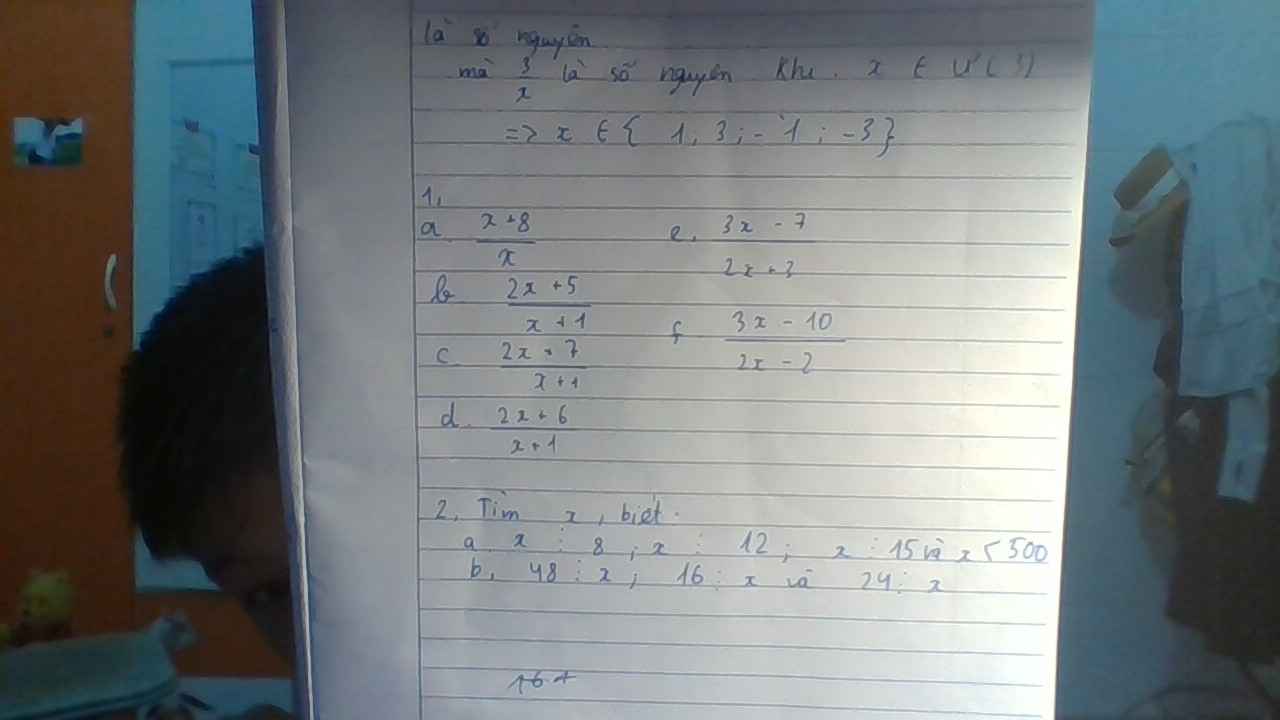 là số nguyên
mà 3/x là số nguyên khi. x ∈ Ư(3)
=> x ∈ { 1, 3 ; -1 ; -3}
1,
a. x+8/x e, 3x - 7/2x + 3
b. 2x +5/x +1 f. 3x - 10/2x - 2
c. 2x + 7/x+1
d. 2x + 6/x+1
2, Tìm x, biết.
a. x ⋮ 8 ; x ⋮ 12 ; x ⋮ 15 và x < 500
b, 48 ⋮ x ; 16 ⋮ x và 24 ⋮ x